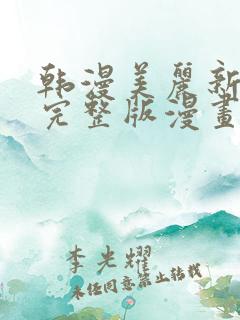 韩漫美麗新
完整版漫畫
李光耀
未经同意禁止转载